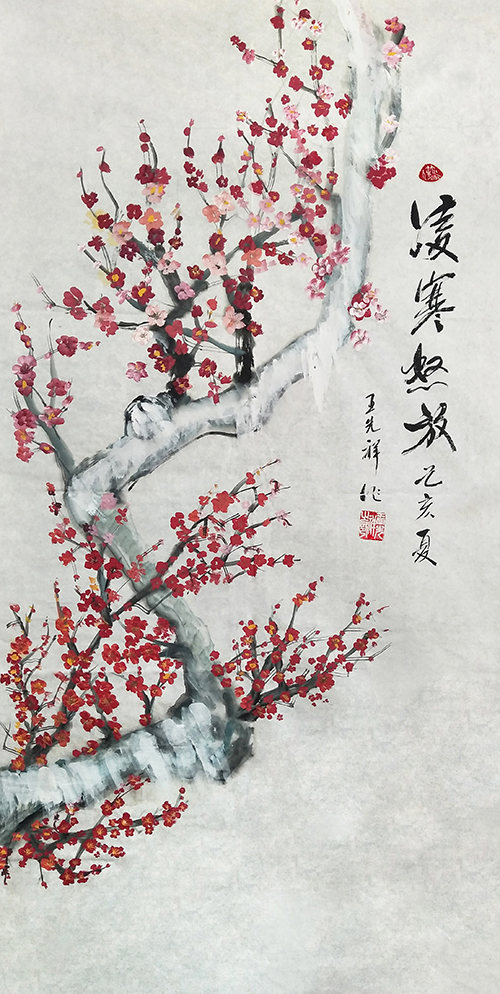 凌寒怒放 己亥夏
王先祥 作